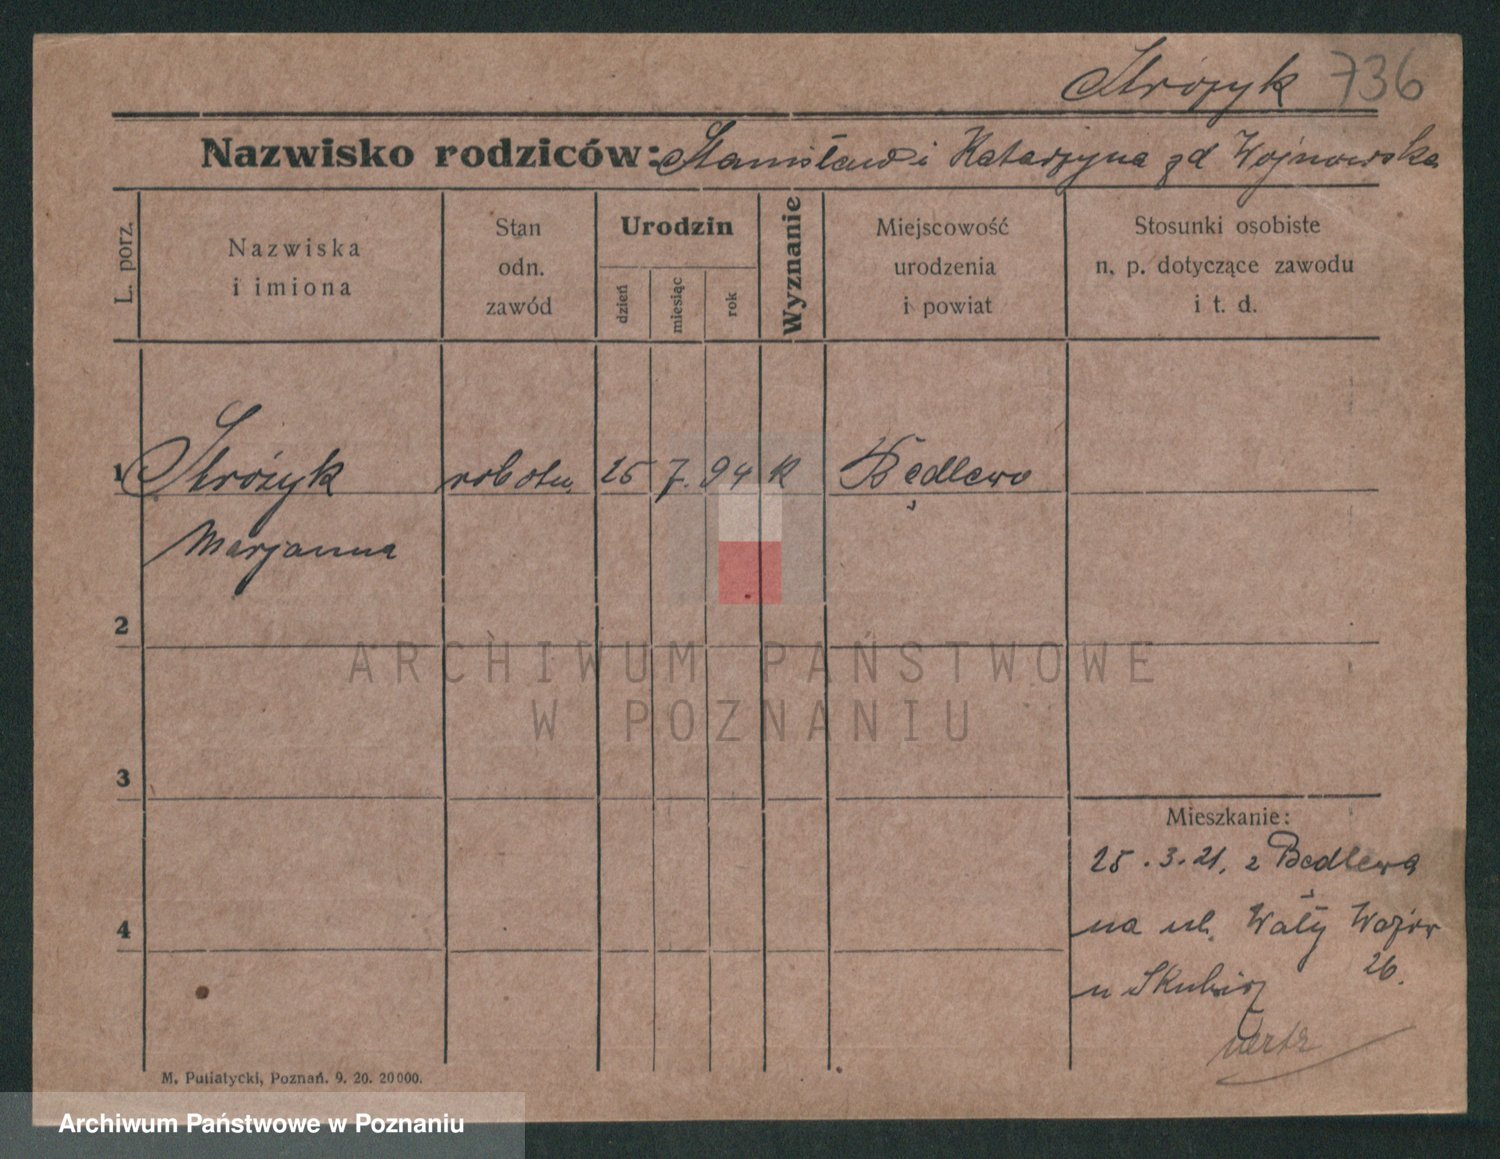 Stróżyk 736
Nazwisko rodziców: Stanisław i Katarzyna zd Wojnowska
L. porz.
Nazwiska
i imiona
Stan
odn.
zawód
Urodzin
dzień
miesiąc
rok
Wyznanie
Miejscowość
urodzenia
i powiat
Stosunki osobiste
n. p. dotyczące zawodu
i t. d.
1 Stróżyk robotn. 25 7. 94 K Będlewo
Marjanna
2
ARCHIWUM PAŃSTWOWE
W POZNANIU
3
Mieszkanie:
25.3.21. z Będlewa
4
na ul. Wały Wazów
26.
u Skubisz
M. Putiatycki, Poznań. 9. 20. 20000.
Archiwum Państwowe w Poznaniu